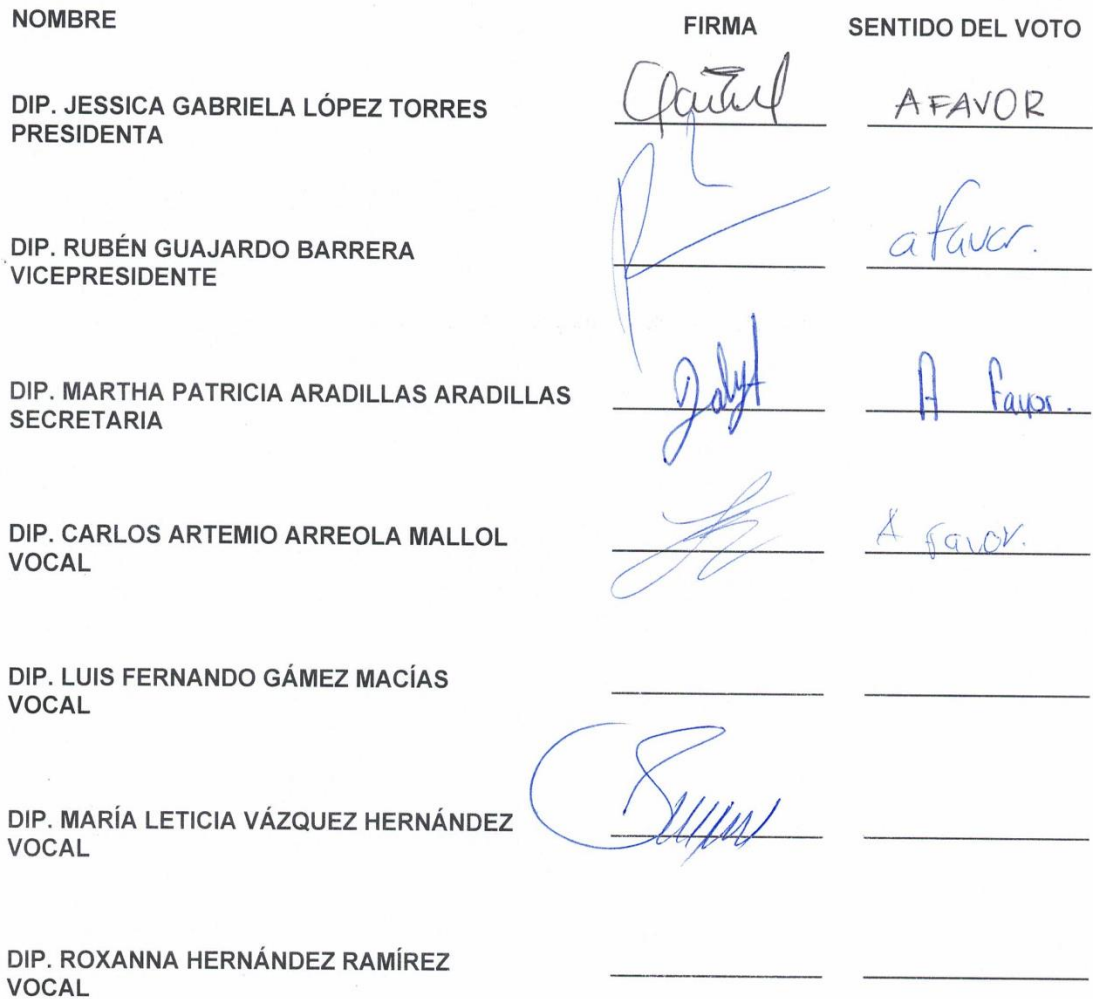 NOMBRE FIRMA SENTIDO DEL VOTO
DIP. JESSICA GABRIELA LÓPEZ TORRES
PRESIDENTA
A FAVOR
DIP. RUBÉN GUAJARDO BARRERA
VICEPRESIDENTE
a favor.
DIP. MARTHA PATRICIA ARADILLAS ARADILLAS
SECRETARIA
A Favor.
DIP. CARLOS ARTEMIO ARREOLA MALLOL
VOCAL
A favor.
DIP. LUIS FERNANDO GÁMEZ MACÍAS
VOCAL
DIP. MARÍA LETICIA VÁZQUEZ HERNÁNDEZ
VOCAL
DIP. ROXANNA HERNÁNDEZ RAMÍREZ
VOCAL